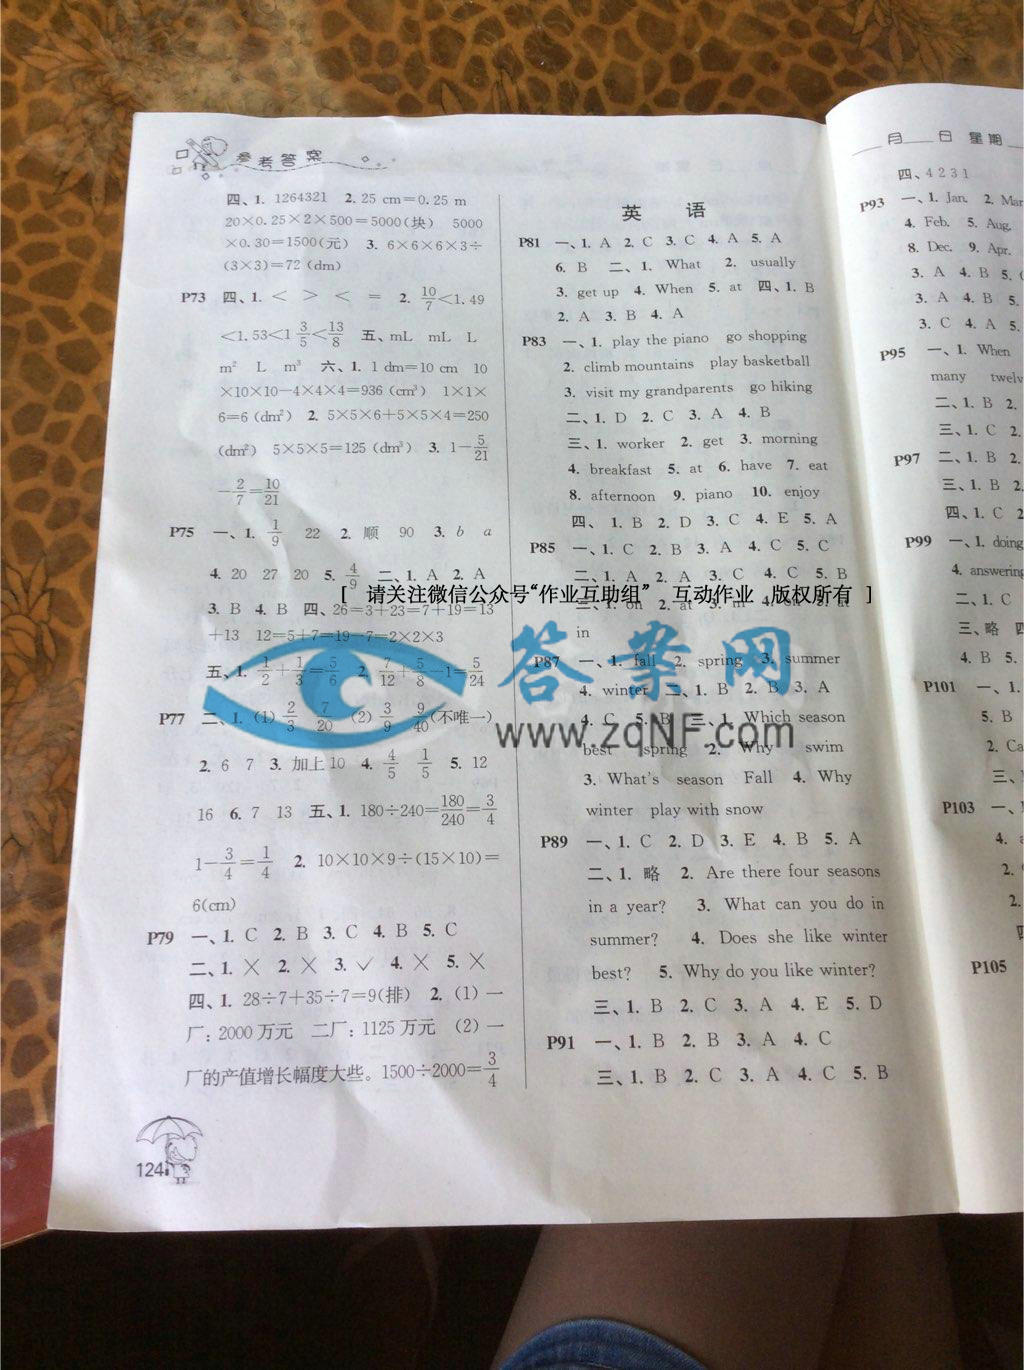 参考答案
四、1. 1264321 2. 25 cm=0.25 m
20×0.25×2×500=5000(块) 5000
×0.30=1500(元) 3. 6×6×6×3÷
(3×3)=72 (dm)
P73 四、1. < > < = 2. 10/7<1.49
<1.53<1 3/5<13/8 五、mL mL L
m² L m³ 六、1. 1 dm=10 cm 10
×10×10-4×4×4=936 (cm³) 1×1×
6=6 (dm²) 2. 5×5×6+5×5×4=250
(dm²) 5×5×5=125 (dm³) 3. 1-5/21
-2/7=10/21
P75 一、1. 1/9 22 2. 顺 90 3. b a
4. 20 27 20 5. 4/9 二、1. A 2. A
3. B 4. B 四、26=3+23=7+19=13
+13 12=5+7=19-7=2×2×3
五、1. 1/2+1/3=5/6 2. 7/12+5/8-1=5/24
P77 二、1. (1) 2/3 7/20 (2) 3/9 9/40(不唯一)
2. 6 7 3. 加上10 4. 4/5 1/5 5. 12
16 6. 7 13 五、1. 180÷240=180/240=3/4
1-3/4=1/4 2. 10×10×9÷(15×10)=
6(cm)
P79 一、1. C 2. B 3. C 4. B 5. C
二、1. × 2. × 3. ✓ 4. × 5. ×
四、1. 28÷7+35÷7=9(排) 2. (1) 一
厂: 2000 万元 二厂: 1125 万元 (2) 一
厂的产值增长幅度大些。1500÷2000=3/4
124
英 语
P81 一、1. A 2. C 3. C 4. A 5. A
6. B 二、1. What 2. usually
3. get up 4. When 5. at 四、1. B
2. A 3. B 4. A
P83 一、1. play the piano go shopping
2. climb mountains play basketball
3. visit my grandparents go hiking
二、1. D 2. C 3. A 4. B
三、1. worker 2. get 3. morning
4. breakfast 5. at 6. have 7. eat
8. afternoon 9. piano 10. enjoy
四、1. B 2. D 3. C 4. E 5. A
P85 一、1. C 2. B 3. A 4. C 5. C
二、1. A 2. A 3. C 4. C 5. B
[ 请关注微信公众号“作业互助组” 互动作业 版权所有 ]
三、1. on 2. at 3. in 4. on 5. at
in
P87 一、1. fall 2. spring 3. summer
4. winter 二、1. B 2. B 3. A
4. C 5. B 三、1. Which season
best spring 2. Why swim
3. What's season Fall 4. Why
winter play with snow
答案网
www.zqNF.com
P89 一、1. C 2. D 3. E 4. B 5. A
二、1. 略 2. Are there four seasons
in a year? 3. What can you do in
summer? 4. Does she like winter
best? 5. Why do you like winter?
三、1. B 2. C 3. A 4. E 5. D
P91 一、1. B 2. B 3. A 4. C
三、1. B 2. C 3. A 4. C 5. B
月 日 星期
四、4 2 3 1
P93 一、1. Jan. 2. Mar
4. Feb. 5. Aug.
8. Dec. 9. Apr.
3. A 4. B 5.
3. A 4. B 5.
3. C 4. A 5.
P95 一、1. When
many twelv
二、1. B 2.
三、1. C 2.
P97 二、1. B 2.
三、1. B 2.
四、1. C 2
P99 一、1. doing
4. answering
二、1. C
三、略 四
4. B 5.
P101 一、1.
5. B
2. Ca
三、
P103 一、1
4. a
2.
2.
P105